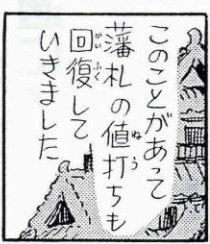 このことがあって
藩札の値打ちも
回復して
いきました